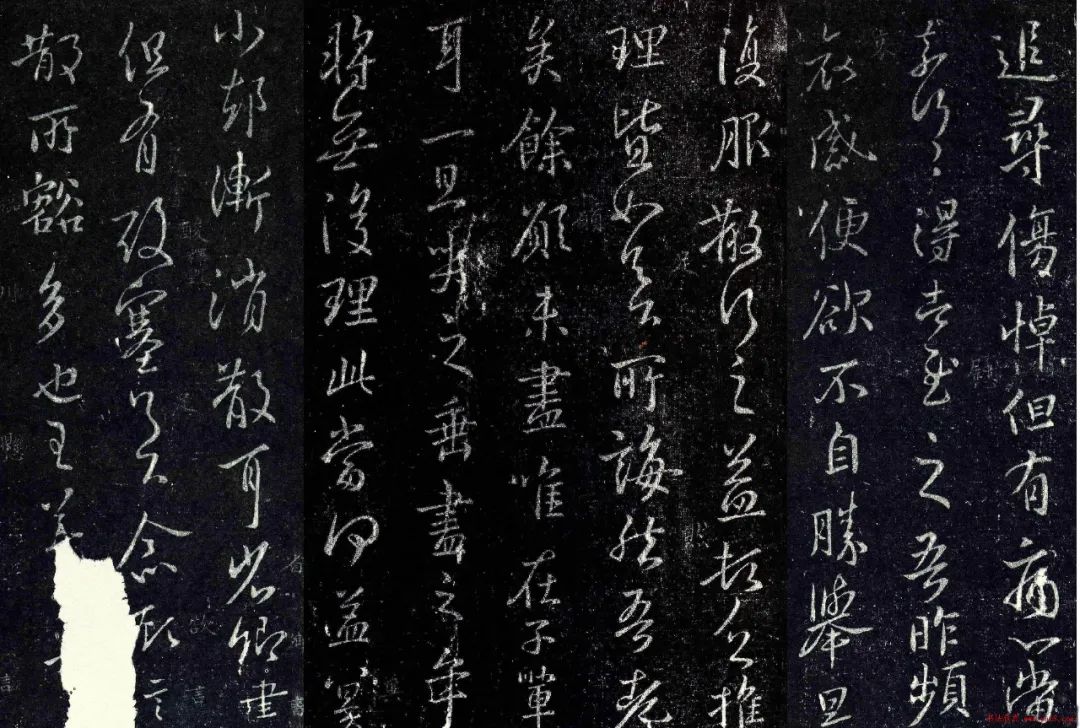 追尋傷悼但有痛心當
奈何奈何得告慰之吾昨頻
哀感便欲不自勝舉旦
復服散行之益頓乏推
理皆如足下所誨然吾老
矣餘願未盡唯在子輩
耳一旦哭之垂盡之年
將無復理此當何益冀
小却漸消散耳省卿書
但有酸塞足下念故言
散所豁多也王羲